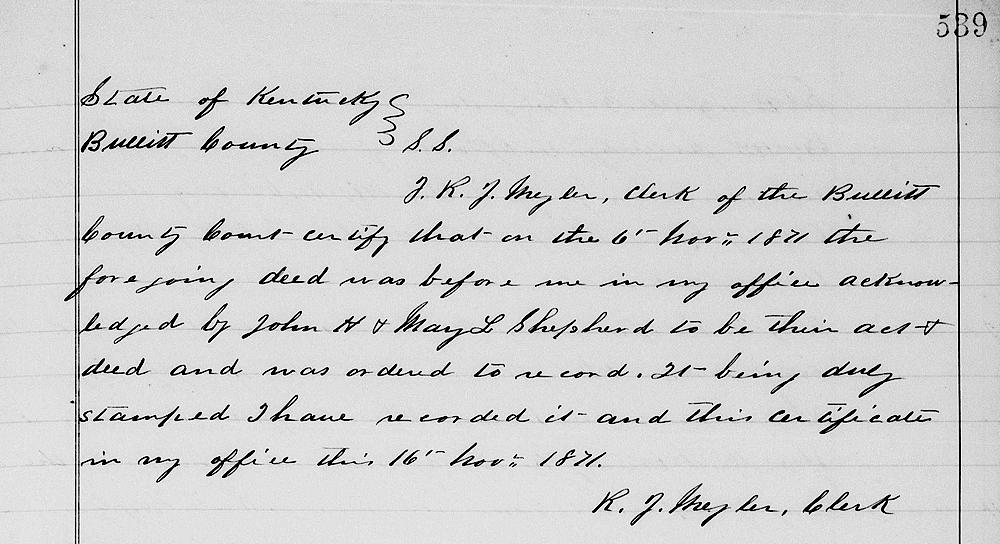 539
State of Kentucky }
Bullitt County } S.S.
I, R. J. Meyler, Clerk of the Bullitt
County Court certify that on the 6" Nov" 1871 the
foregoing deed was before me in my office acknow-
ledged by John H & May L Shepherd to be their act &
deed and was ordered to record. It being duly
stamped I have recorded it and this certificate
in my office this 16" Nov" 1871.
R. J. Meyler, Clerk